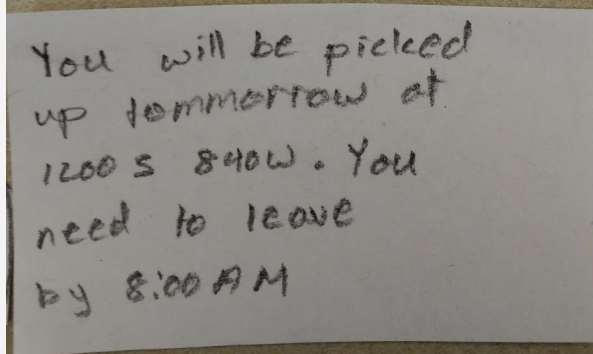 You will be picked
up tommorrow at
1200 S 840W. You
need to leave
by 8:00 AM